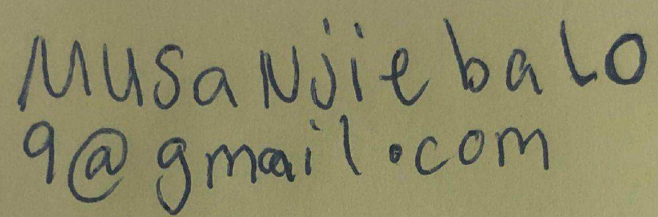 Musa Njie balo
9@gmail.com